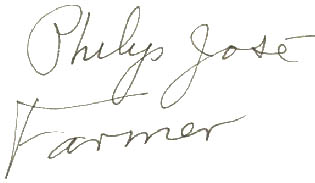 Philip José
Farmer